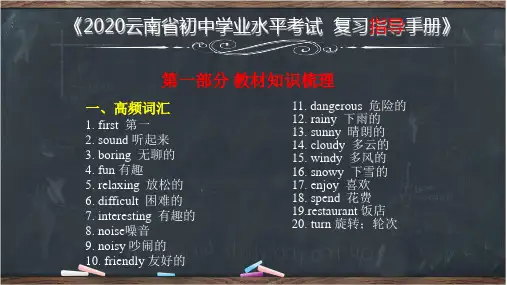 《2020云南省初中学业水平考试 复习指导手册》
第一部分 教材知识梳理
一、高频词汇
1. first 第一
2. sound 听起来
3. boring 无聊的
4. fun 有趣
5. relaxing 放松的
6. difficult 困难的
7. interesting 有趣的
8. noise噪音
9. noisy 吵闹的
10. friendly 友好的
11. dangerous 危险的
12. rainy 下雨的
13. sunny 晴朗的
14. cloudy 多云的
15. windy 多风的
16. snowy 下雪的
17. enjoy 喜欢
18. spend 花费
19.restaurant 饭店
20. turn 旋转；轮次